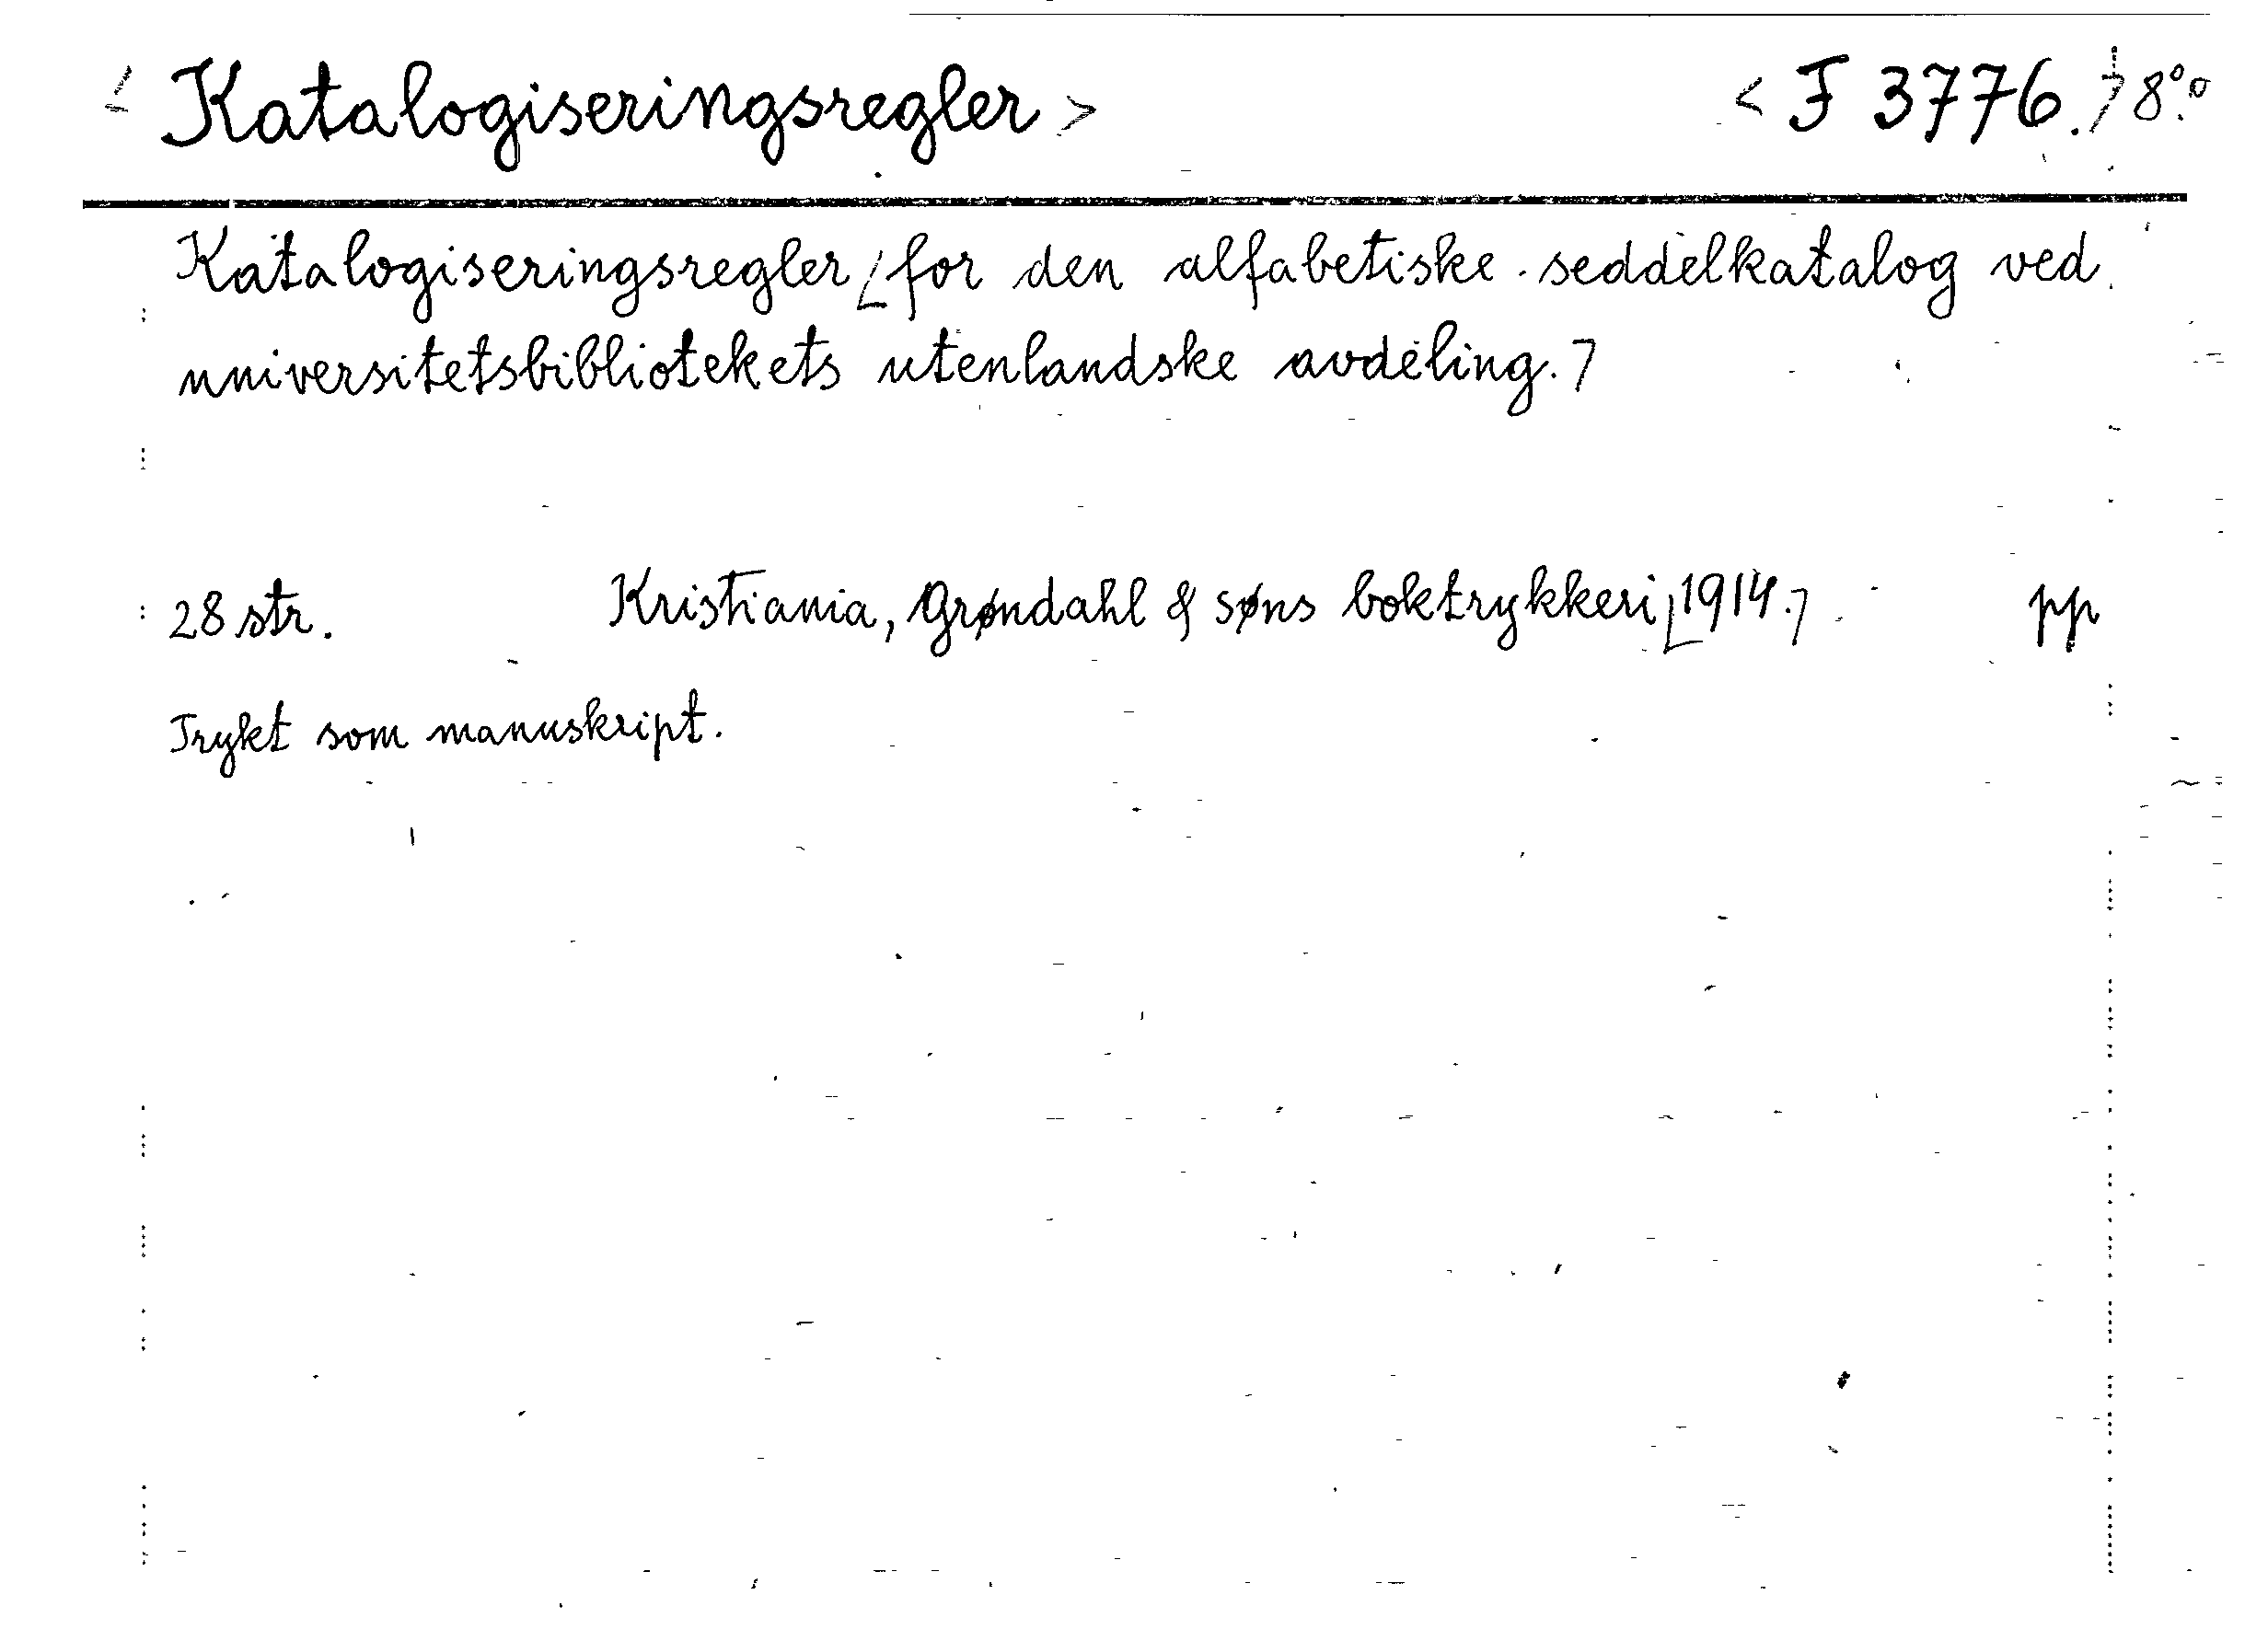 < Katalogiseringsregler > < F 3776. > 8°.
Katalogiseringsregler [for den alfabetiske seddelkatalog ved
universitetsbibliotekets utenlandske avdeling.]
28 str. Kristiania, Grøndahl & søns boktrykkeri [1914.] pp
Trykt som manuskript.